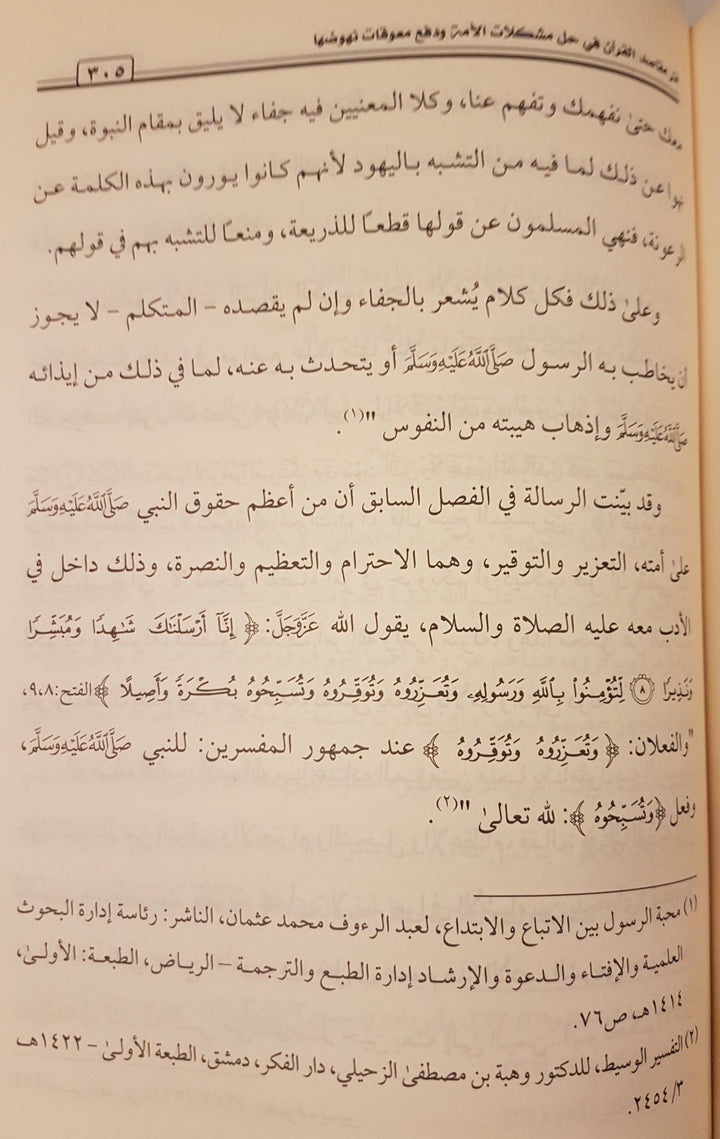 مقاصد القرآن في حل مشكلات الأمة ودفع معوقات نهوضها
٣٠٥
حتىٰ نفهمك وتفهم عنا، وكلا المعنيين فيه جفاء لا يليق بمقام النبوة، وقيل
عن ذلك لما فيه من التشبه باليهود لأنهم كانوا يورون بهذه الكلمة عن
الرعونة، فنهي المسلمون عن قولها قطعًا للذريعة، ومنعًا للتشبه بهم في قولهم.
وعلىٰ ذلك فكل كلام يُشعر بالجفاء وإن لم يقصده – المتكلم – لا يجوز
أن يخاطب به الرسول صَلَّى اللَّهُ عَلَيْهِ وَسَلَّمَ أو يتحدث به عنه، لما في ذلك من إيذائه
صَلَّى اللَّهُ عَلَيْهِ وَسَلَّمَ وإذهاب هيبته من النفوس "(١).
وقد بيّنت الرسالة في الفصل السابق أن من أعظم حقوق النبي صَلَّى اللَّهُ عَلَيْهِ وَسَلَّمَ
علىٰ أمته، التعزير والتوقير، وهما الاحترام والتعظيم والنصرة، وذلك داخل في
الأدب معه عليه الصلاة والسلام، يقول الله عَزَّوَجَلَّ: ﴿ إِنَّآ أَرْسَلْنَٰكَ شَٰهِدًا وَمُبَشِّرًا
وَنَذِيرًا ۝٨ لِّتُؤْمِنُوا۟ بِٱللَّهِ وَرَسُولِهِۦ وَتُعَزِّرُوهُ وَتُوَقِّرُوهُ وَتُسَبِّحُوهُ بُكْرَةً وَأَصِيلًا ﴾ الفتح:٩،٨،
"والفعلان: ﴿ وَتُعَزِّرُوهُ وَتُوَقِّرُوهُ ﴾ عند جمهور المفسرين: للنبي صَلَّى اللَّهُ عَلَيْهِ وَسَلَّمَ،
وفعل ﴿وَتُسَبِّحُوهُ ﴾: لله تعالىٰ "(٢).
(١) محبة الرسول بين الاتباع والابتداع، لعبد الرءوف محمد عثمان، الناشر: رئاسة إدارة البحوث
العلمية والإفتاء والدعوة والإرشاد إدارة الطبع والترجمة – الرياض، الطبعة: الأولىٰ،
١٤١٤هـ، ص٧٦.
(٢) التفسير الوسيط، للدكتور وهبة بن مصطفىٰ الزحيلي، دار الفكر، دمشق، الطبعة الأولىٰ – ١٤٢٢هـ
٢٤٥٤/٣.